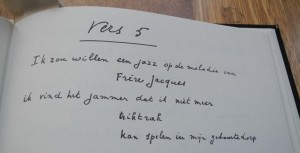 Vers 5
Ik zou willen een jazz op de melodie van
Frère Jacques
ik vind het jammer dat ik niet meer
kan spelen in mijn geboortedorp